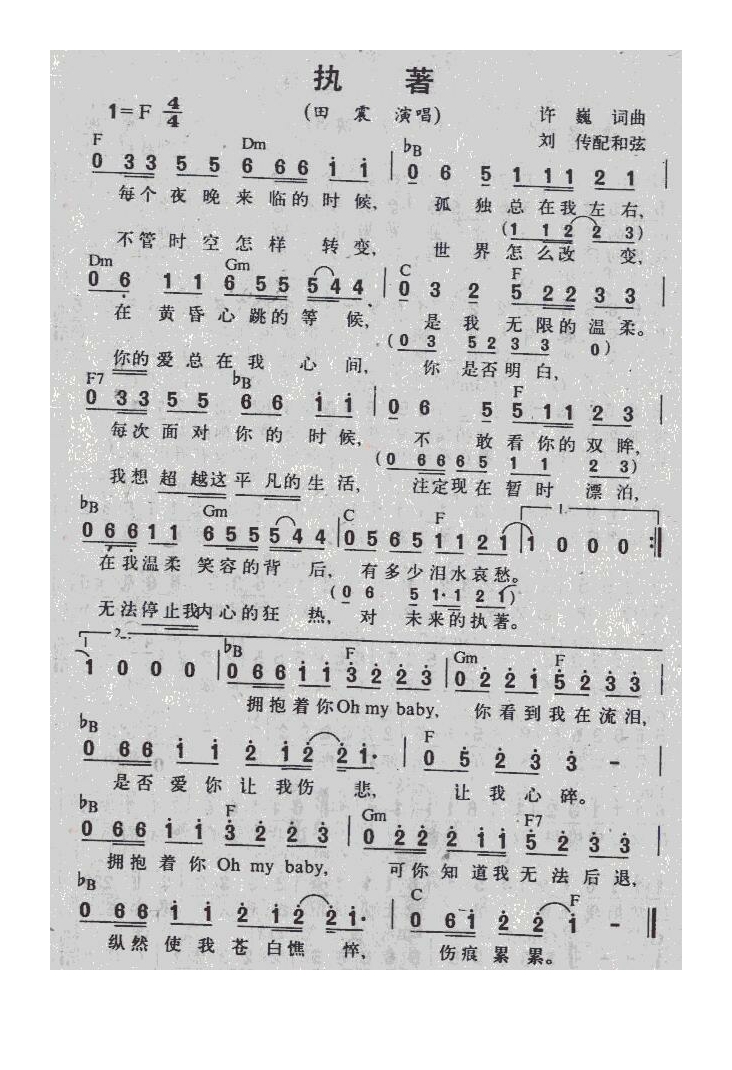 执 著
1=F 4/4 (田 震 演唱) 许 巍 词曲
刘 传配和弦
F Dm ♭B
0 33 55 6 66 i i | 0 6 5 1 11 2 1 |
每个夜晚来临的时候, 孤独总在我左右,
(1 1 2 2 3)
不管时空怎样转变, 世界怎么改变,
Dm Gm C F
0 6 1 1 6 55 5 4 4 | 0 3 2 5 22 3 3 |
在黄昏心跳的等候, 是我无限的温柔。
(0 3 5 2 3 3 0)
你的爱总在我心间, 你是否明白,
F7 ♭B F
0 33 55 6 6 i i | 0 6 5 5 11 2 3 |
每次面对你的时候, 不敢看你的双眸,
(0 6 6 6 5 1 1 2 3)
我想超越这平凡的生活, 注定现在暂时漂泊,
♭B Gm C F 1.
0 66 1 1 6 55 5 4 4 | 0 5 6 5 1 1 2 1 | 1 0 0 0 :||
在我温柔笑容的背后, 有多少泪水哀愁。
(0 6 5 1· 1 2 1)
无法停止我内心的狂热, 对未来的执著。
2.
1 0 0 0 | ♭B F Gm F
0 66 i i 3 2 2 3 | 0 2 2 i 5 2 3 3 |
拥抱着你Oh my baby, 你看到我在流泪,
♭B F
0 66 i i 2 i 2 2 i· | 0 5 2 3 3 - |
是否爱你让我伤悲, 让我心碎。
♭B F Gm F7
0 66 i i 3 2 2 3 | 0 2 2 2 i i 5 2 3 3 |
拥抱着你 Oh my baby, 可你知道我无法后退,
♭B C F
0 66 i i 2 i 2 2 i· | 0 6 i 2 2 i - ||
纵然使我苍白憔悴, 伤痕累累。